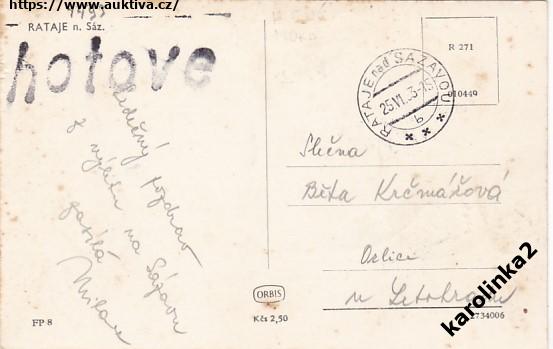 https://www.auktiva.cz/
RATAJE n. Sáz.
hotove
Srdečný pozdrav
z výletu na Sázavu
zasílá
Milan
R 271
010449
RATAJE nad SÁZAVOU
25.VI.53-15
b
Slečna
Běta Krčmářová
Orlice
u Letohradu
ORBIS
Kčs 2,50
FP 8
2734006
karolinka2